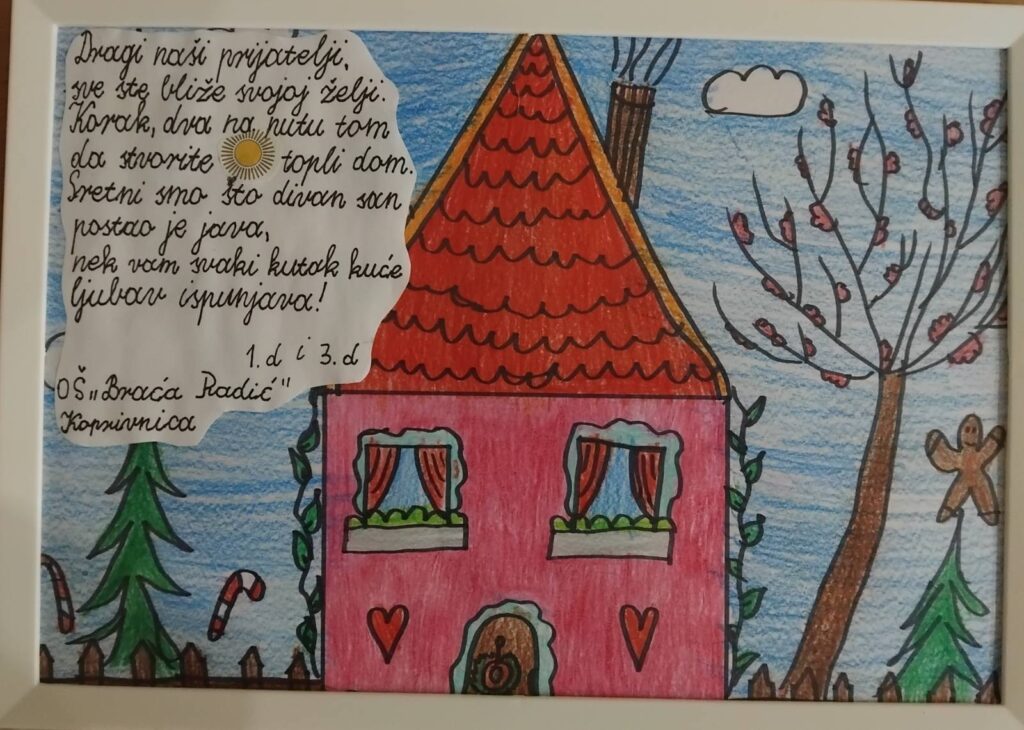 Dragi naši prijatelji,
sve ste bliže svojoj želji.
Korak, dva na putu tom
da stvorite topli dom.
Sretni smo što divan san
postao je java,
nek vam svaki kutak kuće
ljubav ispunjava!
1. d i 3. d
OŠ „Braća Radić"
Koprivnica